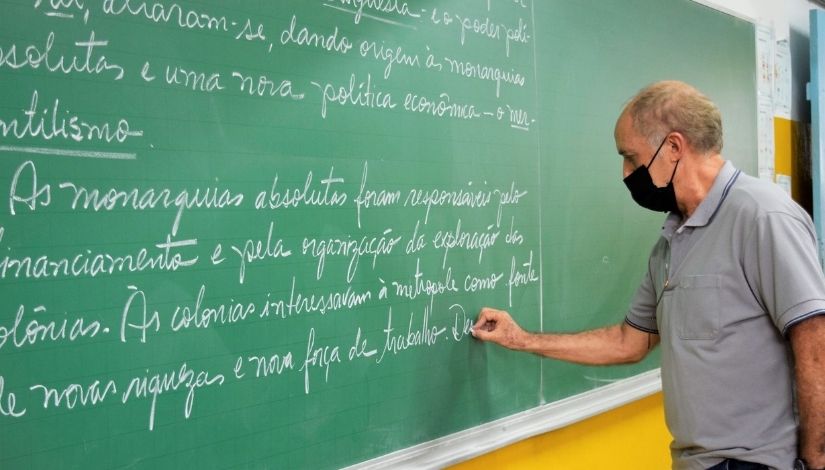 aliaram-se, dando origem às monarquias
absolutas e uma nova política econômica - o mer-
ntilismo.
As monarquias absolutas foram responsáveis pelo
financiamento e pela organização da exploração das
olônias. As colonias interessavam à metropole como fonte
de novas riquezas e nova força de trabalho. Du